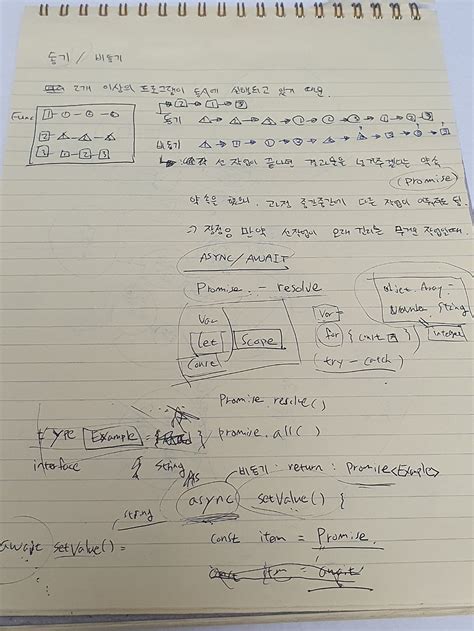 동기 / 비동기
2개 이상의 프로그램이 동시에 실행되고 있기 때문.
Func
동기
비동기
선 작업이 끝나면 결과값을 넘겨주겠다는 약속
(promise)
약속은 했으니, 과정 중간중간에 다른 작업이 이루어져도 됨.
장점은 만약 선작업이 오래 걸리는 무거운 작업일때.
ASYNC/AWAIT
Promise. - resolve
Object. Array -
Number String
Integer
Var
let
Const
Scope
Var
for { const
try - catch
Promise.resolve()
promise.all()
type Example = {
interface
String
비동기 : return : Promise<Example>
async setValue() {
string
const item = Promise.
await setValue() =